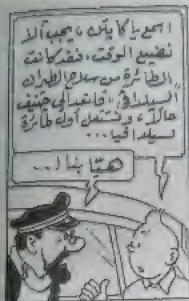 اسمع يا كابتن، يجب ألا
نضيع الوقت، فقد كانت
الطائرة من سلاح الطيران
السيلدافي، فلنعد إلى جنيف
حالاً، ونستقل أول طائرة
لسيلدافيا...
هيّا بنا!...